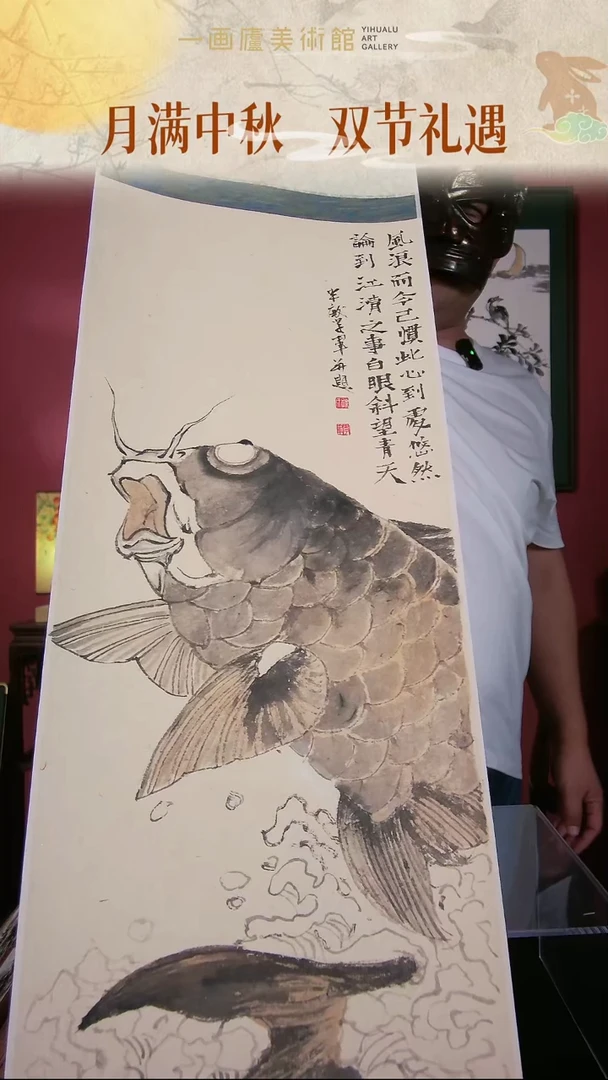 一画廬美術館
YIHUALU
ART
GALLERY
月满中秋 双节礼遇
風浪而今已慣此心到處悠然
論到江清之事白眼斜望青天